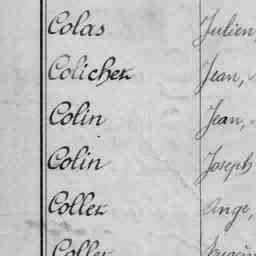 Colas Julien,
Colicher Jean,
Colin Jean,
Colin Joseph
Coller Ange,
Coller